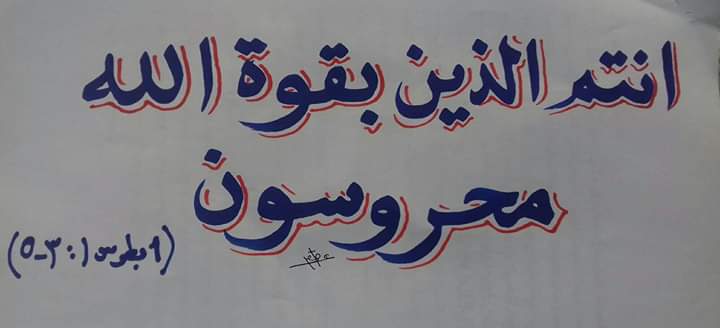 انتم الذين بقوة الله
محروسون
(١ بطرس ١: ٣-٥)